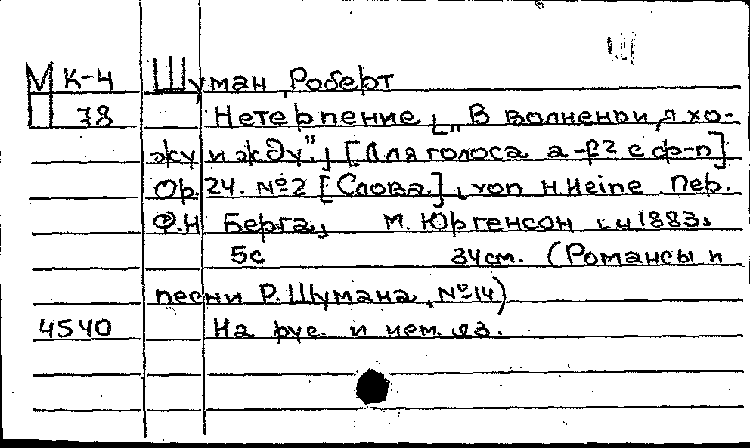 Ш
М К-4 Шуман Роберт
П 78 Нетерпение [„В волненьи я хо-
жу и жду".] [Для голоса a-f2 с ф-п]
Op. 24. №2 [Слова.] von H. Heine. Пер.
Ф.Н Берга, М. Юргенсон ц. 1883.
5с 34см. (Романсы и
песни Р. Шумана, №14)
4540 На рус. и нем. яз.